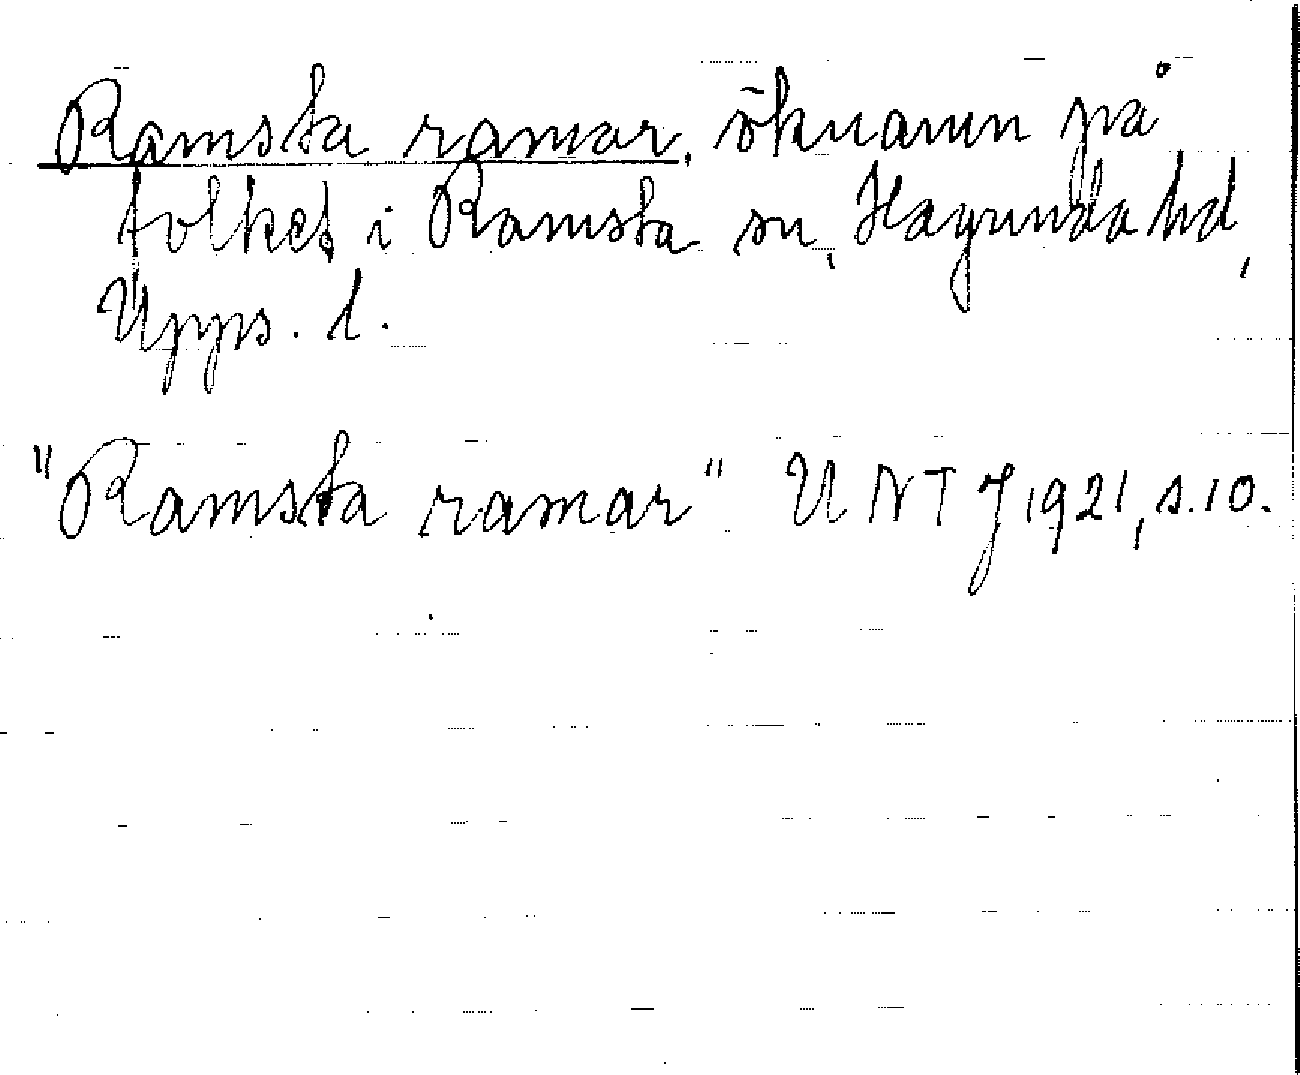 Ramsta ramar, öknamn på
folket i Ramsta sn, Hagunda hd,
Upps. l.
"Ramsta ramar" UNT J 1921, s. 10.